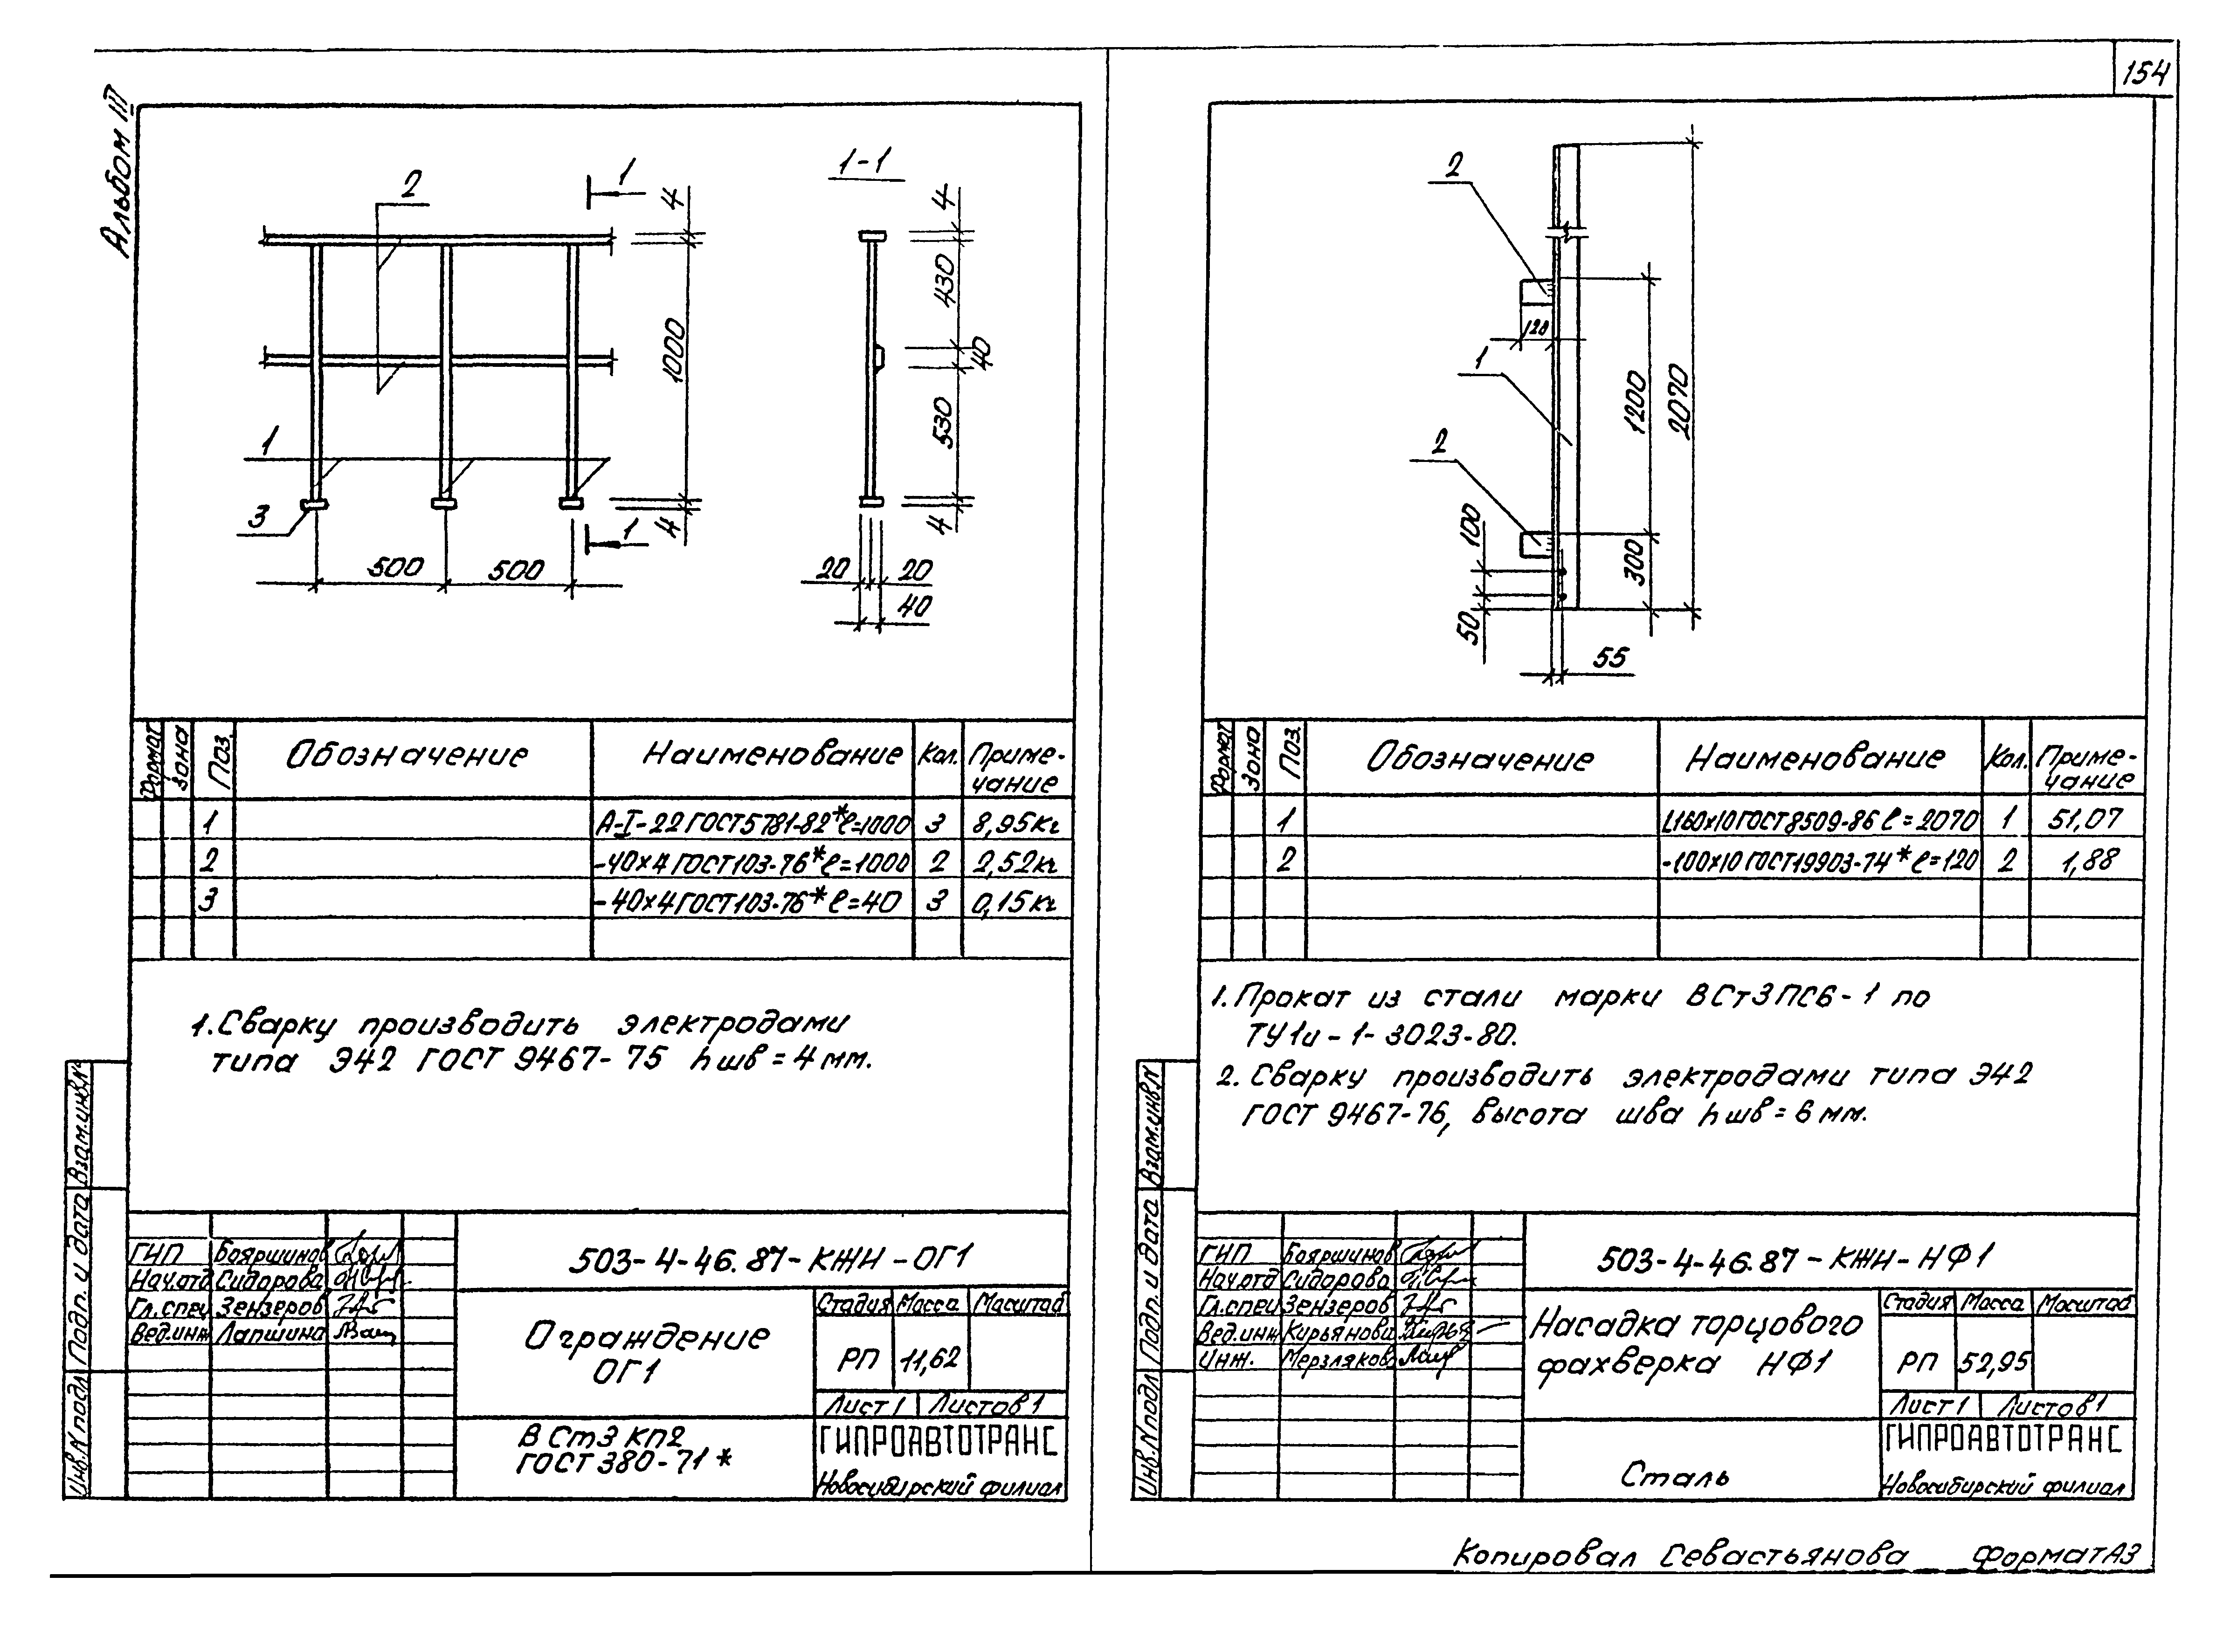 154
Альбом III
2
1
1-1
4
1000
4
1
3
1
500
500
4
430
40
530
4
20
20
40
Формат Зона Поз. Обозначение Наименование Кол. Примечание
1 А-I-22 ГОСТ 5781-82* ℓ=1000 3 8,95кг
2 -40×4 ГОСТ 103-76* ℓ=1000 2 2,52кг
3 -40×4 ГОСТ 103-76* ℓ=40 3 0,15кг
1. Сварку производить электродами
типа Э42 ГОСТ 9467-75 hшв=4мм.
Взам.инв.N
Подп. и дата
Инв.N подл
ГИП Бояршинов
Нач.отд Сидорова
Гл.спец Зензеров
Вед.инж Лапшина
503-4-46.87-КЖИ-ОГ1
Ограждение
ОГ1
Стадия Масса Масштаб
РП 11,62
Лист 1 Листов 1
ВСт3 кп2
ГОСТ 380-71*
ГИПРОАВТОТРАНС
Новосибирский филиал
2
120
1
2
1200
2070
300
100
50
55
Формат Зона Поз. Обозначение Наименование Кол. Примечание
1 L160×10 ГОСТ 8509-86 ℓ=2070 1 51,07
2 -100×10 ГОСТ 19903-74* ℓ=120 2 1,88
1. Прокат из стали марки ВСт3ПС6-1 по
ТУ1и-1-3023-80.
2. Сварку производить электродами типа Э42
ГОСТ 9467-76, высота шва hшв=6мм.
Взам.инв.N
Подп. и дата
Инв.N подл
ГИП Бояршинов
Нач.отд Сидорова
Гл.спец Зензеров
Вед.инж Кирьянова
Инж. Мерзляков
503-4-46.87-КЖИ-НФ1
Насадка торцового
фахверка НФ1
Стадия Масса Масштаб
РП 52,95
Лист 1 Листов 1
Сталь
ГИПРОАВТОТРАНС
Новосибирский филиал
Копировал Севастьянова Формат А3